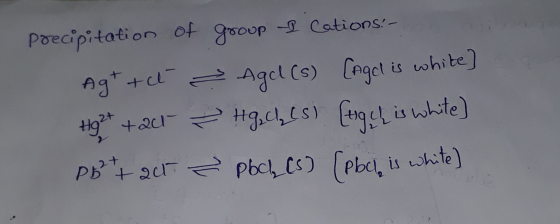 Precipitation of group-I Cations:-
Ag⁺ + Cl⁻ ⇌ Agcl(s) [Agcl is white]
Hg₂²⁺ + 2Cl⁻ ⇌ Hg₂Cl₂(s) [Hg₂Cl₂ is white]
Pb²⁺ + 2Cl⁻ ⇌ Pbcl₂(s) [Pbcl₂ is white]